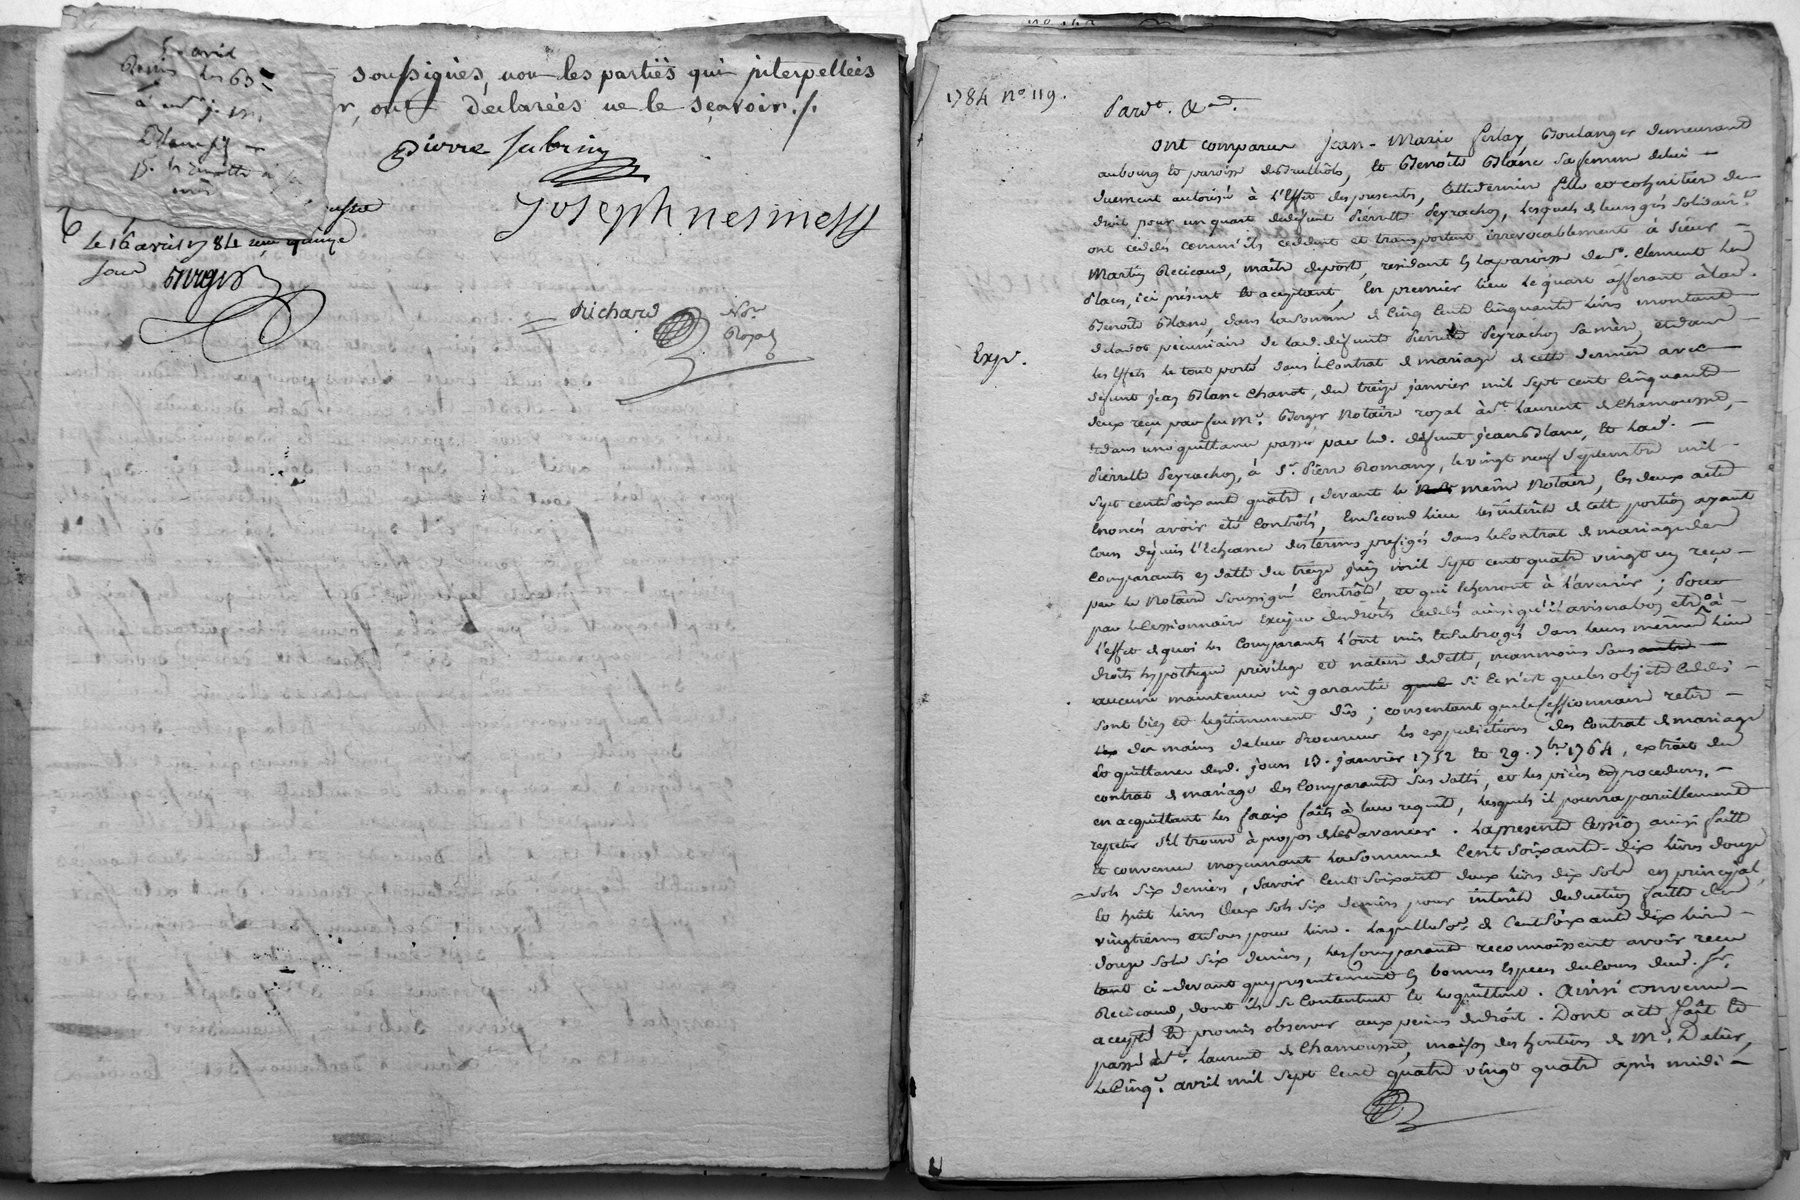 5 avril
soussignés, non les parties qui interpellées
r, ont déclarées ne le sçavoir ./.
Pierre Subrin
Joseph nesme
Le 16 avril 1784 reçu quinze
sous
Richard
Nore
Royal
1784 no. 119.
Pardt. &a.
ont comparu Jean-Marie ferlay Boulanger demeurant
aubourg et paroisse des halles, et Benoite Blanc sa femme de lui
duement autorisée à l'Effet des presentes, cette derniere fille et cohéritiere de
droit pour un quart de defunte Pierrette Peyrachon, lesquels de leurs grés solidairt.
ont cédés comm'ils cedent et transportent irrevocablement à sieur
Martin Recicaud, maitre de poste, residant en la paroisse de st. Clement les
places, ici présent et acceptant, En premier lieu le quart afferant à lad.
Benoite Blanc, dans la somme de Cinq Cent Cinquante livres montant
de la dot pécuniaire de lad. defunte Pierrette Peyrachon sa mère, et dans
les effets le tout porté dans le Contrat de mariage de cette derniere avec
defunt jean Blanc Chanot, du treize janvier mil sept cent Cinquante
deux reçu par feu Me. Berger Notaire royal à st. laurent de Chamousset,
et dans une quittance passée par led. defunt jean Blanc, et lad.
Pierrette Peyrachon, à sr. Pierre Romany, le vingt neuf septembre mil
sept cent soixante quatre, devant le même Notaire, les deux actes
Enoncés avoir été Contrôlés, En second lieu les intérêts de cette portion ayant
cours depuis l'Echeance des termes prefigés dans le Contrat de mariage des
comparants en datte du treize juin mil sept cent quatre vingt un reçu
par le Notaire soussigné Contrôlé, et qui echerront à l'avenir; pour
par le Cessionnaire Exiger des droits cedés ainsi qu'il avisera bon etre à
l'effet de quoi les Comparants l'ont mis et subrogés dans leurs mêmes lieu
droits hypotheque privilege et nature de dette, neanmoins sans
aucune maintenue ni garantie si ce n'est que les objets cedés
sont bien et legitimement dûs; consentant que le Cessionnaire retire
des mains de leur Procureur les expeditions des Contrat de mariage
et quittance desd. jours 13. janvier 1752 et 29. 7bre 1764, extrait du
contrat de mariage des Comparants sus datté, et les pièces et procedures,
en acquittant les fraix faits à leur requete, lesquels il pourra pareillement
repeter s'il trouve à propos de les avancer. La presente Cession ainsi faitte
et convenue moyennant la somme de Cent soixante-dix livres douze
sols six deniers, savoir Cent soixante deux livres dix sols en principal,
et huit livres deux sols six deniers pour intérêts deduction faitte des
vingtiemes et sous pour livre. Laquelle se. de Cent soixante dix livres
douze sols six deniers, les Comparants reconnoissent avoir reçu
tant ci-devant que presentement en bonnes Especes du Cours dud. sr.
Recicaud, dont ils se contentent et le quittent. Ainsi convenu
accepté et promis observer aux peines de droit. Dont acte fait et
passé à st. laurent de Chamousset, maison des heritiers de Me. Delier,
le Cinqe. avril mil sept Cent quatre vingt quatre après midi
Expé.